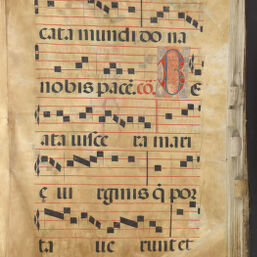 cata mundi do na
nobis pacē. cō. B E
ata uisce ra mari
ę ui rginis q̄ por
ta ue runt et